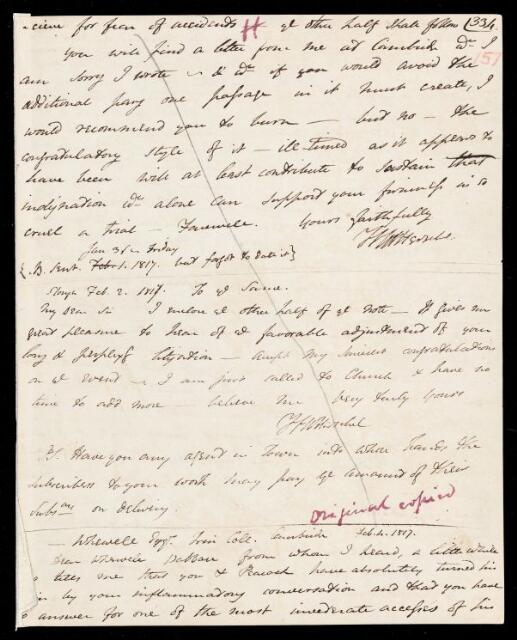 -cieve for fear of accidents H ye other half shall follow (334
You will find a letter from me at Cambridge wch I 151
am sorry I wrote & if you would avoid the
additional pang one passage in it must create, I
would recommend you to burn — but no — the
congratulatory style of it — ill timed as it appears to
have been will at least contribute to sustain that
indignation wch alone can support your firmness in so
cruel a trial — Farewell. Yours faithfully
JFWHerschel.
Jan 31 - Friday
{ N.B. Sent Feb. 1. 1817. but forgot to date it }
Slough Feb. 2. 1817. To ye Same.
My Dear Sir I inclose ye other half of ye note — It gives me
great pleasure to hear of ye favorable adjustment of your
long & perplexg litigation — accept my sincere congratulations
on ye event — I am just called to Church & have no
time to add more — believe me very truly yours
JFWHerschel
PS. Have you any agent in Town into whose hands the
subscribers to your work may pay ye amount of their
Subsons on delivery.
Original copied
— Whewell Esqr. Trin Coll. Cambridge Feb. 4. 1817.
Dear Whewell Babbage from whom I heard, a little while
tells me that you & Peacock have absolutely turned his
by your inflammatory conversation and that you have
answer for one of the most inveterate accesses of his